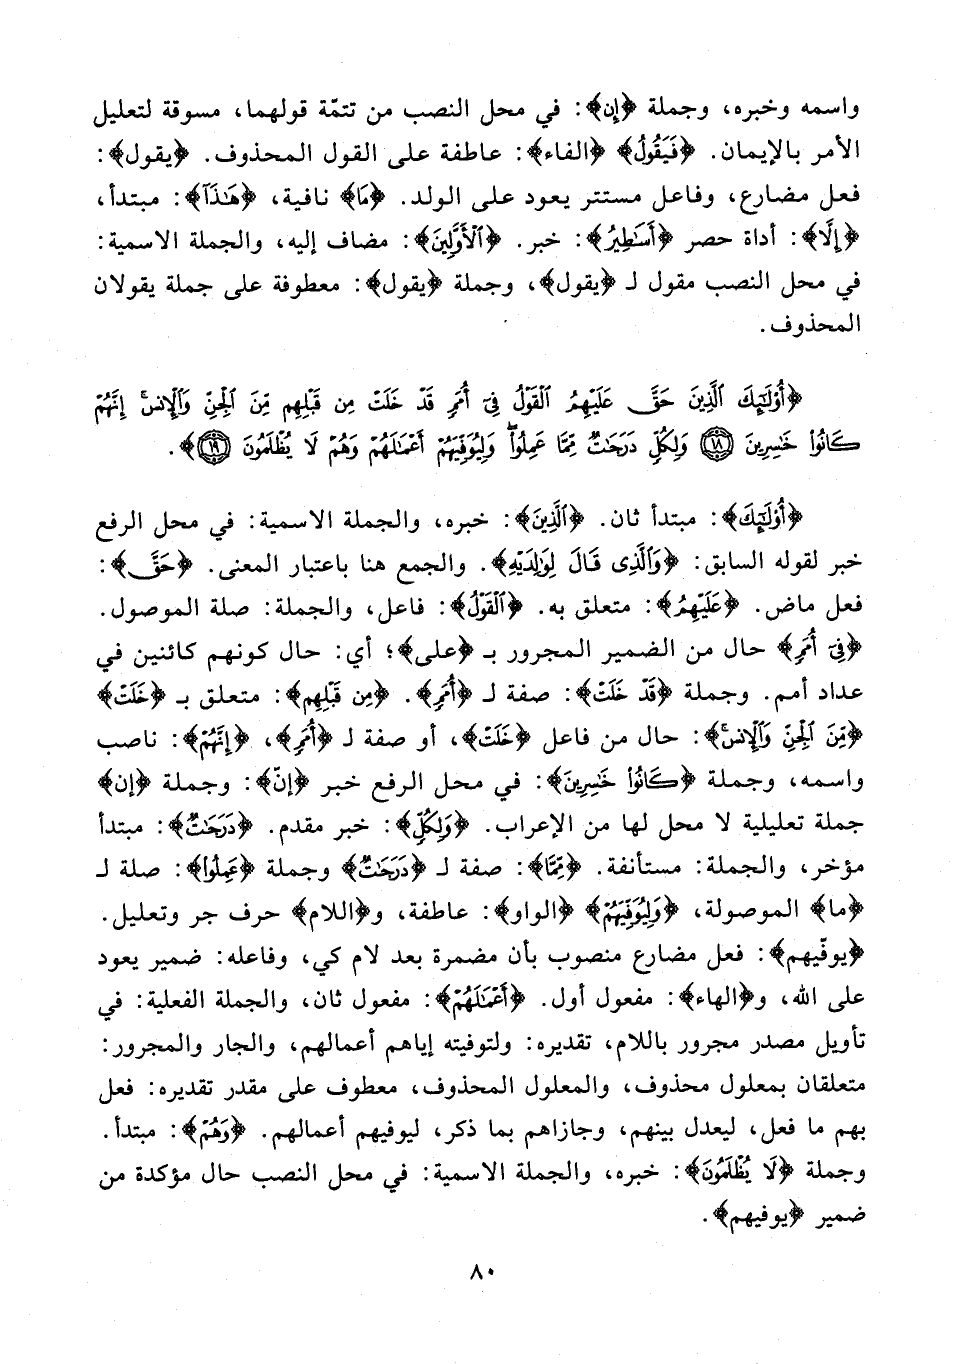 واسمه وخبره، وجملة ﴿إن﴾: في محل النصب من تتمّة قولهما، مسوقة لتعليل
الأمر بالإيمان. ﴿فَيَقُولُ﴾ ﴿الفاء﴾: عاطفة على القول المحذوف. ﴿يقول﴾:
فعل مضارع، وفاعل مستتر يعود على الولد. ﴿مَا﴾ نافية، ﴿هَٰذَآ﴾: مبتدأ،
﴿إِلَّا﴾: أداة حصر ﴿أَسَٰطِيرُ﴾: خبر. ﴿ٱلْأَوَّلِينَ﴾: مضاف إليه، والجملة الاسمية:
في محل النصب مقول لـ ﴿يقول﴾، وجملة ﴿يقول﴾: معطوفة على جملة يقولان
المحذوف.
﴿أُوْلَٰٓئِكَ ٱلَّذِينَ حَقَّ عَلَيْهِمُ ٱلْقَوْلُ فِىٓ أُمَمٍ قَدْ خَلَتْ مِن قَبْلِهِم مِّنَ ٱلْجِنِّ وَٱلْإِنسِۖ إِنَّهُمْ
كَانُوا۟ خَٰسِرِينَ ١٨ وَلِكُلٍّ دَرَجَٰتٌ مِّمَّا عَمِلُوا۟ۖ وَلِيُوَفِّيَهُمْ أَعْمَٰلَهُمْ وَهُمْ لَا يُظْلَمُونَ ١٩﴾.
﴿أُوْلَٰٓئِكَ﴾: مبتدأ ثان. ﴿ٱلَّذِينَ﴾: خبره، والجملة الاسمية: في محل الرفع
خبر لقوله السابق: ﴿وَٱلَّذِى قَالَ لِوَٰلِدَيْهِ﴾. والجمع هنا باعتبار المعنى. ﴿حَقَّ﴾:
فعل ماض. ﴿عَلَيْهِمُ﴾: متعلق به. ﴿ٱلْقَوْلُ﴾: فاعل، والجملة: صلة الموصول.
﴿فِىٓ أُمَمٍ﴾ حال من الضمير المجرور بـ ﴿على﴾؛ أي: حال كونهم كائنين في
عداد أمم. وجملة ﴿قَدْ خَلَتْ﴾: صفة لـ ﴿أُمَمٍ﴾. ﴿مِن قَبْلِهِم﴾: متعلق بـ ﴿خَلَتْ﴾
﴿مِّنَ ٱلْجِنِّ وَٱلْإِنسِۖ﴾: حال من فاعل ﴿خَلَتْ﴾، أو صفة لـ ﴿أُمَمٍ﴾، ﴿إِنَّهُمْ﴾: ناصب
واسمه، وجملة ﴿كَانُوا۟ خَٰسِرِينَ﴾: في محل الرفع خبر ﴿إنّ﴾: وجملة ﴿إن﴾
جملة تعليلية لا محل لها من الإعراب. ﴿وَلِكُلٍّ﴾: خبر مقدم. ﴿دَرَجَٰتٌ﴾: مبتدأ
مؤخر، والجملة: مستأنفة. ﴿مِّمَّا﴾: صفة لـ ﴿دَرَجَٰتٌ﴾ وجملة ﴿عَمِلُوا۟﴾: صلة لـ
﴿ما﴾ الموصولة، ﴿وَلِيُوَفِّيَهُمْ﴾ ﴿الواو﴾: عاطفة، و﴿اللام﴾ حرف جر وتعليل.
﴿يوفّيهم﴾: فعل مضارع منصوب بأن مضمرة بعد لام كي، وفاعله: ضمير يعود
على الله، و﴿الهاء﴾: مفعول أول. ﴿أَعْمَٰلَهُمْ﴾: مفعول ثان، والجملة الفعلية: في
تأويل مصدر مجرور باللام، تقديره: ولتوفيته إياهم أعمالهم، والجار والمجرور:
متعلقان بمعلول محذوف، والمعلول المحذوف، معطوف على مقدر تقديره: فعل
بهم ما فعل، ليعدل بينهم، وجازاهم بما ذكر، ليوفيهم أعمالهم. ﴿وَهُمْ﴾: مبتدأ.
وجملة ﴿لَا يُظْلَمُونَ﴾: خبره، والجملة الاسمية: في محل النصب حال مؤكدة من
ضمير ﴿يوفيهم﴾.
٨٠